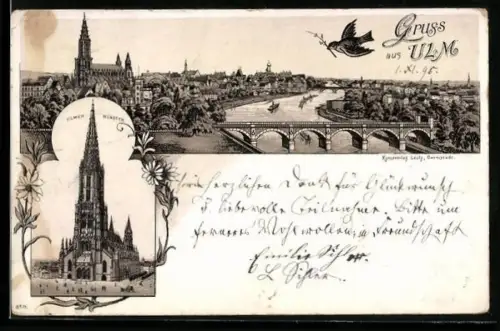 Gruss
aus ULM
1.XI.96.
ULMER MÜNSTER
Kunstverlag Lautz, Darmstadt.
herzlichen Dank für Glückwunsch
u. liebevolle Teilnahme. Bitte um
ferneres Wohlwollen u. Freundschaft
Emilie Sihler.
L Sihler